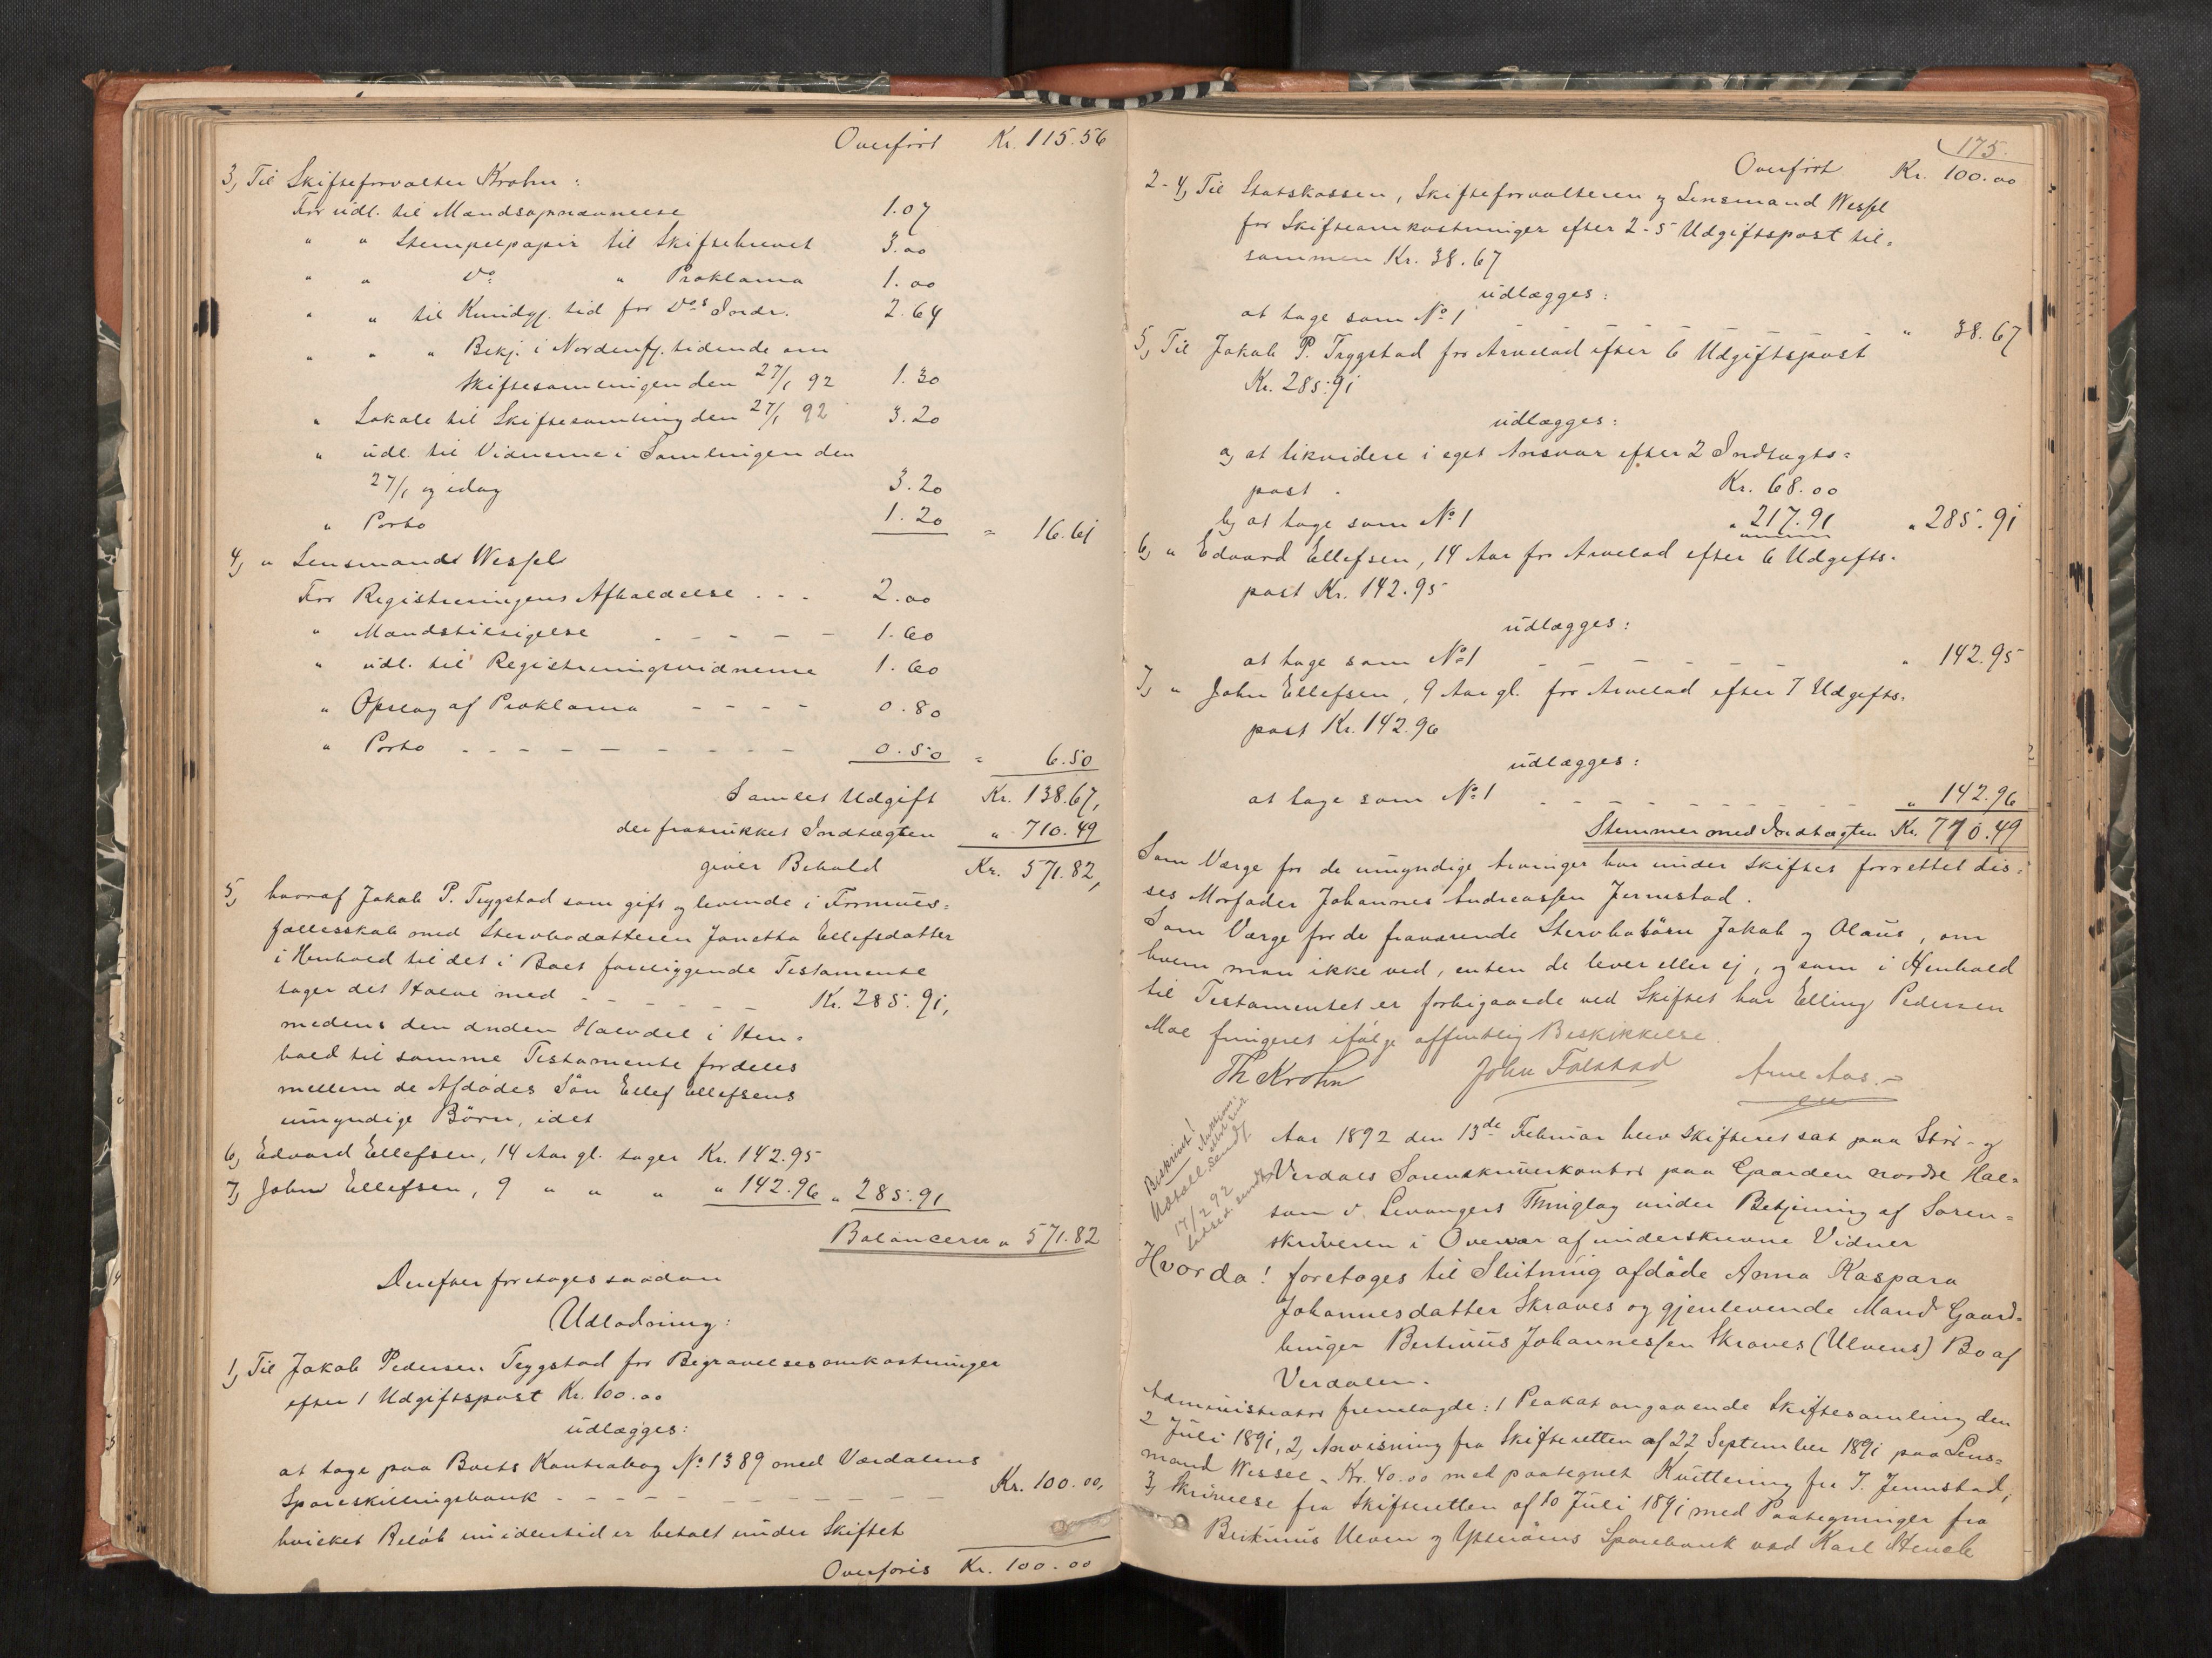 Overført Kr. 115.56
3, Til Skifteforvalter Krohn:
For udl. til Mandsopnævnelse 1.07
" " Stempelpapir til Skiftebrevet 3.00
" " Do " Proklama 1.00
" " til Kundgj. tid for Dos Indr. 2.64
" " " Bekj. i Nordenfj. tidende om
Skiftesamlingen den 27/1 92 1.30
" Lokale til Skiftesamling den 27/1 92 3.20
" udl. til Vidnerne i Samlingen den
27/1 og idag 3.20
" Porto 1.20 = 16.61
4, " Lensmand Wessel
For Registreringens Afholdelse . . . 2.00
" Mandstilsigelse - - - - 1.60
" udl. til Registreringsvidnerne 1.60
" Opslag af Proklama - - - - 0.80
" Porto - - - - - - - - 0.50 = 6.50
Samlet Udgift Kr. 138.67,
der fratrukket Indtægten " 710.49
giver Behold Kr. 571.82,
5, hvoraf Jakob P. Trygstad som gift og levende i Formues=
fællesskab med Stervbodatteren Janetta Ellefsdatter
i Henhold til det i Boet foreliggende Testamente
tager det Halve med - - - - - - Kr. 285.91,
medens den anden Halvdel i Hen=
hold til samme Testamente fordeles
mellem de Afdødes Søn Ellef Ellefsens
umyndige Børn, idet
6, Edvard Ellefsen, 14 Aar gl. tager Kr. 142.95
7, John Ellefsen, 9 " " " " 142.96 " 285.91
Balancerer " 571.82
Derefter foretoges saadan
Udlodning:
1, Til Jakob Pedersen Trygstad for Begravelsesomkostninger
efter 1 Udgiftspost Kr. 100.00
udlægges:
at tage paa Boets Kontrabog No 1389 med Værdalens
Spareskillingsbank - - - - - - - - - Kr. 100.00,
hvilket Beløb imidlertid er betalt under Skiftet
Overføres Kr. 100.00
175.
Overført Kr. 100.00
2-4, Til Statskassen, Skifteforvalteren og Lensmand Wessel
for Skifteomkostninger efter 2-5 Udgiftspost til=
sammen Kr. 38.67
udlægges:
at tage som No 1 - - - - - - " 38.67
5, Til Jakob P. Trygstad for Arvelod efter 6 Udgiftspost
Kr. 285.91
udlægges:
a, at likvidere i eget Ansvar efter 2 Indtægts=
post . Kr. 68.00
b, at tage som No 1 " 217.91 " 285.91
6, " Edvard Ellefsen, 14 Aar for Arvelod efter 6 Udgifts=
post Kr. 142.95
udlægges:
at tage som No 1 - - - - - - " 142.95
7, " John Ellefsen, 9 Aar gl. for Arvelod efter 7 Udgifts=
post Kr. 142.96
udlægges:
at tage som No 1 - - - - - - - - - " 142.96
Stemmer med Indtægten Kr. 710.49
Som Værge for de umyndige Arvinger har under Skiftet forrettet dis=
ses Morfader Johannes Andreassen Jermstad.
Som Værge for de fraværende Stervbobørn Jakob og Olaus, om
hvem man ikke ved, enten de lever eller ej, og som i Henhold
til Testamentet er forbigaaede ved Skiftet har Elling Pedersen
Moe fungeret ifølge offentlig Beskikkelse.
Th Krohn John Falstad Arne Aas.
Beskrivet!
17/2 92
Aar 1892 den 13de Februar blev Skifteret sat paa Stør- og
Verdals Sorenskriverkontor paa Gaarden nordre Hal=
san i Levangers Thinglag under Betjening af Soren=
skriveren i Overvær af underskrevne Vidner
Hvorda! foretoges til Slutning afdøde Anna Kaspara
Johannesdatter Skraves og gjenlevende Mand Gaard=
bruger Bertinus Johannessen Skraves (Ulvens) Bo af
Verdalen.
Administrator fremlagde: 1 Plakat angaaende Skiftesamling den
2 Juli 1891, 2, Anvisning fra Skifteretten af 22 September 1891 paa Lens=
mand Wessel - Kr. 40.00 med paategnet Kvittering fra J. Jermstad,
3, Skrivelse fra Skifteretten af 10 Juli 1891 med Paategninger fra
Bertinus Ulven og Ytterøens Sparebank ved Karl